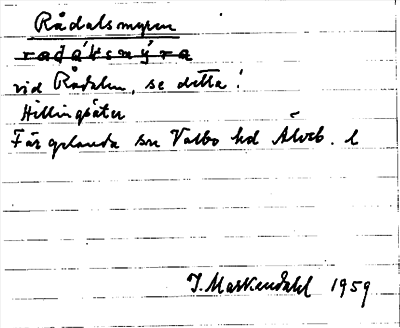 Rådalsmyren
vid Rådalen, se detta!
Hillingsäter
Färgelanda sn Valbo hd Älvsb. l
J. Markendahl 1959